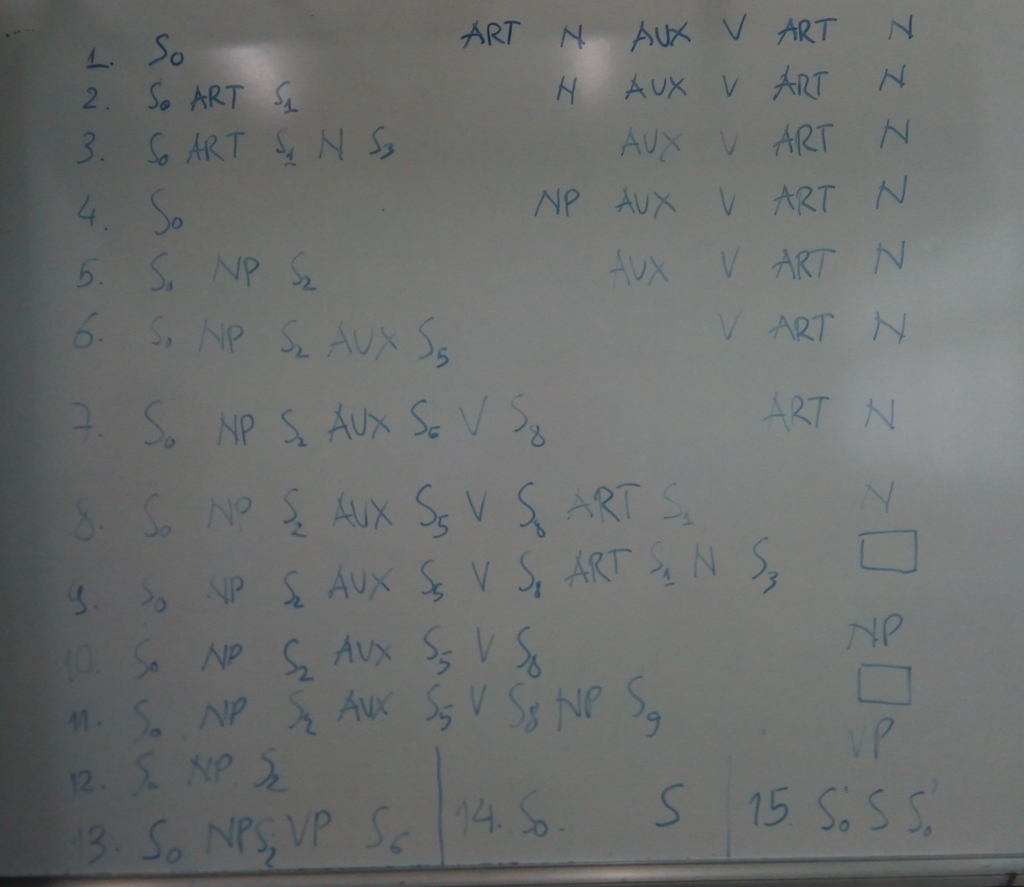 1. S0 ART N AUX V ART N
2. S0 ART S1 N AUX V ART N
3. S0 ART S1 N S3 AUX V ART N
4. S0 NP AUX V ART N
5. S0 NP S2 AUX V ART N
6. S0 NP S2 AUX S5 V ART N
7. S0 NP S2 AUX S6 V S8 ART N
8. S0 NP S2 AUX S5 V S8 ART S1 N
9. S0 NP S2 AUX S5 V S8 ART S1 N S3
10. S0 NP S2 AUX S5 V S8 NP
11. S0 NP S2 AUX S5 V S8 NP S9
12. S0 NP S2 VP
13. S0 NP S2 VP S6
14. S0. S
15. S0' S S0'